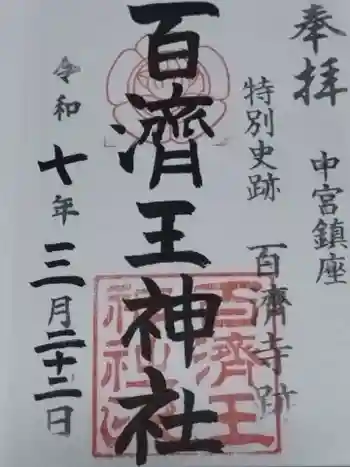 奉拝
中宮鎮座
特別史跡 百濟寺跡
百濟王神社
百濟王
神社之印
令和七年三月二十二日